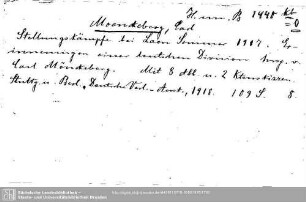 H. un. B 1448
Moenkeberg, Carl
Stellungskämpfe bei Laon Sommer 1917. Er-
innerungen einer deutschen Division hrsg. v.
Carl Mönckeberg. Mit 8 Abb. u. 2 Kartenskizzen.
Stuttg. u. Berl., Deutsche Verl.-Anst., 1918. 109 S. 8.
Sächsische Landesbibliothek -
Staats- und Universitätsbibliothek Dresden